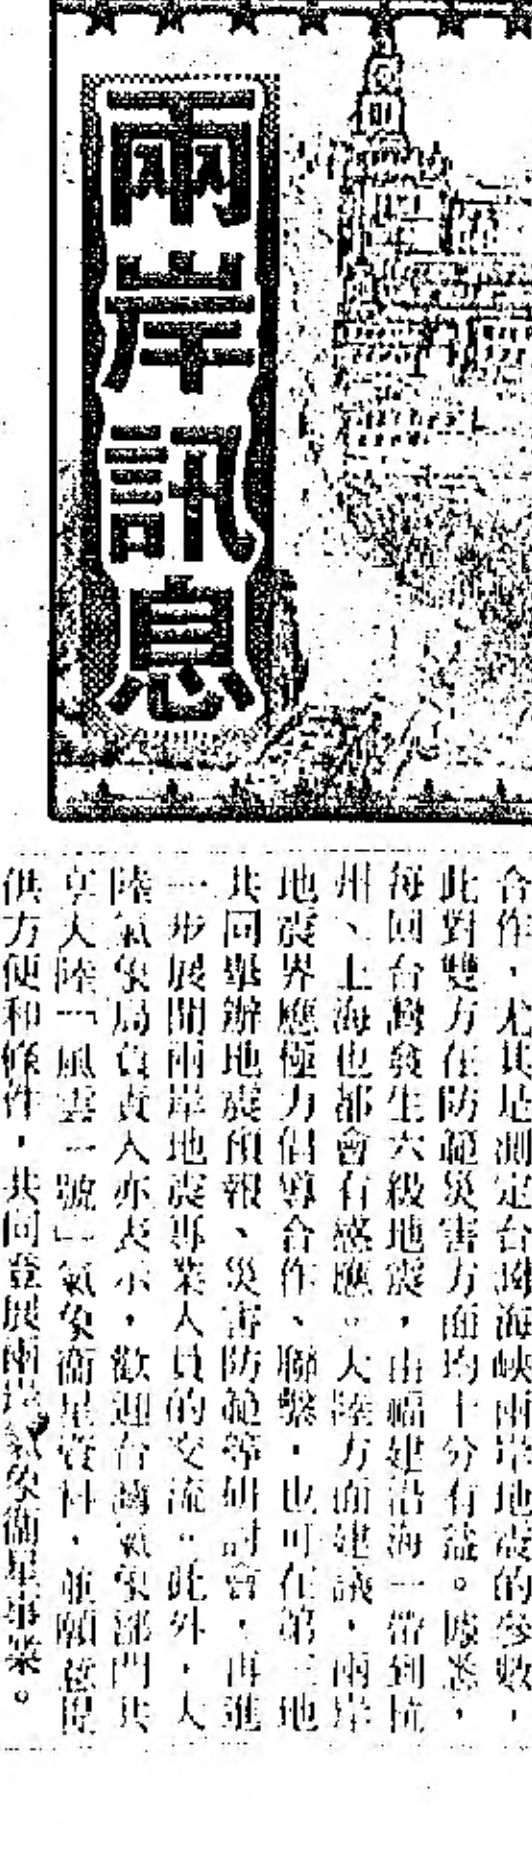 兩岸訊息
合作,尤其是測定台灣海峽兩岸地震的參數,
此對雙方在防範災害方面均十分有益。據悉,
每回台灣發生六級地震,由福建沿海一帶到杭
州、上海也都會有感應。大陸方面建議,兩岸
地震界應極力倡導合作、聯繫,也可在第三地
共同舉辦地震預報、災害防範等研討會,再進
一步展開兩岸地震專業人員的交流。此外,大
陸氣象局負責人亦表示,歡迎台灣氣象部門共
享大陸「風雲一號」氣象衛星資料,並願意提
供方便和條件,共同發展兩岸氣象衛星事業。